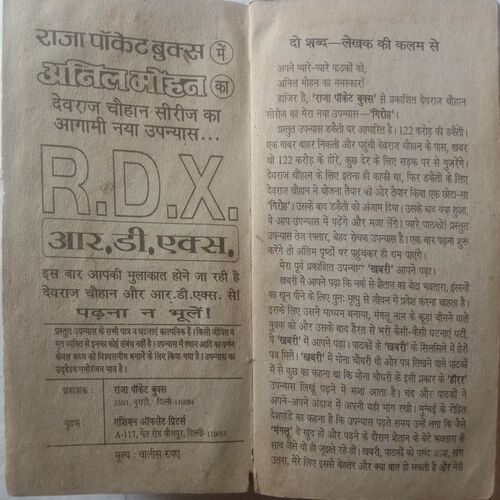 राजा पॉकेट बुक्स में
अनिल मोहन का
देवराज चौहान सीरीज का
आगामी नया उपन्यास...
R.D.X.
आर.डी.एक्स.
इस बार आपकी मुलाकात होने जा रही है
देवराज चौहान और आर.डी.एक्स. से!
पढ़ना न भूलें!
प्रस्तुत उपन्यास के सभी पात्र व घटनाएं काल्पनिक हैं। किसी जीवित व
मृत व्यक्ति से इनका कोई संबंध नहीं है। उपन्यास में स्थान आदि का वर्णन
केवल कथ्य को विश्वसनीय बनाने के लिए किया गया है। उपन्यास का
उद्देश्य मनोरंजन मात्र है।
प्रकाशक : राजा पॉकेट बुक्स
330/1, बुराड़ी, दिल्ली-110084
मुद्रक : एशियन ऑफसेट प्रिंटर्स
A-117, मेन रोड मौजपुर, दिल्ली-110053
मूल्य : चालीस रुपए
दो शब्द—लेखक की कलम से
अपने प्यारे-प्यारे पाठकों को,
अनिल मोहन का नमस्कार!
हाजिर है, 'राजा पॉकेट बुक्स' से प्रकाशित देवराज चौहान
सीरीज का मेरा नया उपन्यास—'गिरोह'।
प्रस्तुत उपन्यास डकैती पर आधारित है। 122 करोड़ की डकैती।
एक खबर बाहर निकली और पहुंची देवराज चौहान के पास, खबर
थी 122 करोड़ के हीरे, कुछ देर के लिए सड़क पर से गुजरेंगे।
देवराज चौहान के लिए इतना ही काफी था, फिर डकैती के लिए
देवराज चौहान ने योजना तैयार की और तैयार किया एक छोटा-सा
'गिरोह'। उसके बाद डकैती को अंजाम दिया। उसके बाद क्या हुआ,
ये आप उपन्यास में पढ़ेंगे और मजा लेंगे। प्यारे पाठकों! प्रस्तुत
उपन्यास तेज रफ्तार, बेहद रोचक उपन्यास है। एक बार पढ़ना शुरू
करेंगे तो अंतिम पृष्ठों पर पहुंचकर ही दम पाएंगे।
मेरा पूर्व प्रकाशित उपन्यास 'खबरी' आपने पढ़ा।
खबरी में आपने पढ़ा कि नर्क से शैतान का बेटा भवतारा, इंसानों
का खून पीने के लिए पुनः मृत्यु से जीवन में प्रवेश करना चाहता है।
इसके लिए उसने माध्यम बनाया, मंगलू नाम के कूड़ा बीनने वाले
युवक को और उसके बाद हैरत से भरी कैसी-कैसी घटनाएं घटीं,
ये 'खबरी' में आपने पढ़ा। पाठकों के 'खबरी' के सिलसिले में ढेरों
पत्र मिले। 'खबरी' में मोना चौधरी थी और पत्र लिखने वाले पाठकों
में से कुछ का कहना था कि मोना चौधरी के इसी प्रकार के 'हॉरर'
उपन्यास लिखूं पढ़ने में मजा आता है। चंद और पाठकों ने
अपने-अपने अंदाज में अपनी यही मांग रखी। मुम्बई के रोहित
देशपांडे का कहना है कि उपन्यास पढ़ते समय उन्हें लगा कि जैसे
'मंगलू' वे खुद हों और पढ़ने के दौरान शैतान के बेटे भवतारा के
साथ जैसे वो ही जूझते रहे हों। खबरी, पाठकों को पसंद आया, खरा
उतरा, मेरे लिए इससे बेहतर और क्या बात हो सकती है और मेरी